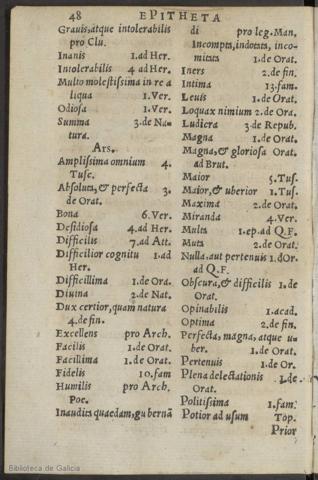 48 EPITHETA
Grauis, atque intolerabilis
pro Clu.
Inanis 1.ad Her.
Intolerabilis 4 ad Her.
Multo molestissima in re a
liqua 1.Ver.
Odiosa 1.Ver.
Summa 3.de Na-
tura.
Ars.
Amplissima omnium 4.
Tusc.
Absoluta, & perfecta 3.
de Orat.
Bona 6.Ver.
Desidiosa 4.ad Her.
Difficilis 7.ad Att.
Difficilior cognitu 1.ad
Her.
Difficillima 1.de Ora.
Diuina 2.de Nat.
Dux certior, quam natura
4.de fin.
Excellens pro Arch.
Facilis 1.de Orat.
Facillima 1.de Orat.
Fidelis 10.fam
Humilis pro Arch.
Poe.
Inaudita quaedam, gu berna
di pro leg.Man.
Incompta, indotata, inco-
mitata 1.de Orat.
Iners 2.de fin.
Intima 13.fam.
Leuis 1.de Orat.
Loquax nimium 2.de Ora.
Ludicra 3 de Repub.
Magna 1.de Orat.
Magna, & gloriosa Orat.
ad Brut.
Maior 5.Tus.
Maior, & uberior 1.Tus.
Maxima 2.de Orat.
Miranda 4.Ver.
Multa 1.ep.ad Q.F.
Muta 2.de Orat.
Nulla.aut pertenuis
ad Q.F.
Obscura, & difficilis 1.de
Orat.
Opinabilis 1.acad.
Optima 2.de fin.
Perfecta, magna, atque u-
ber. 1.de Orat.
Pertenuis 1.de Or.
Plena delectationis 1.de
Orat.
Politissima 1.fam.
Potior ad usum Top.
Prior
Biblioteca de Galicia